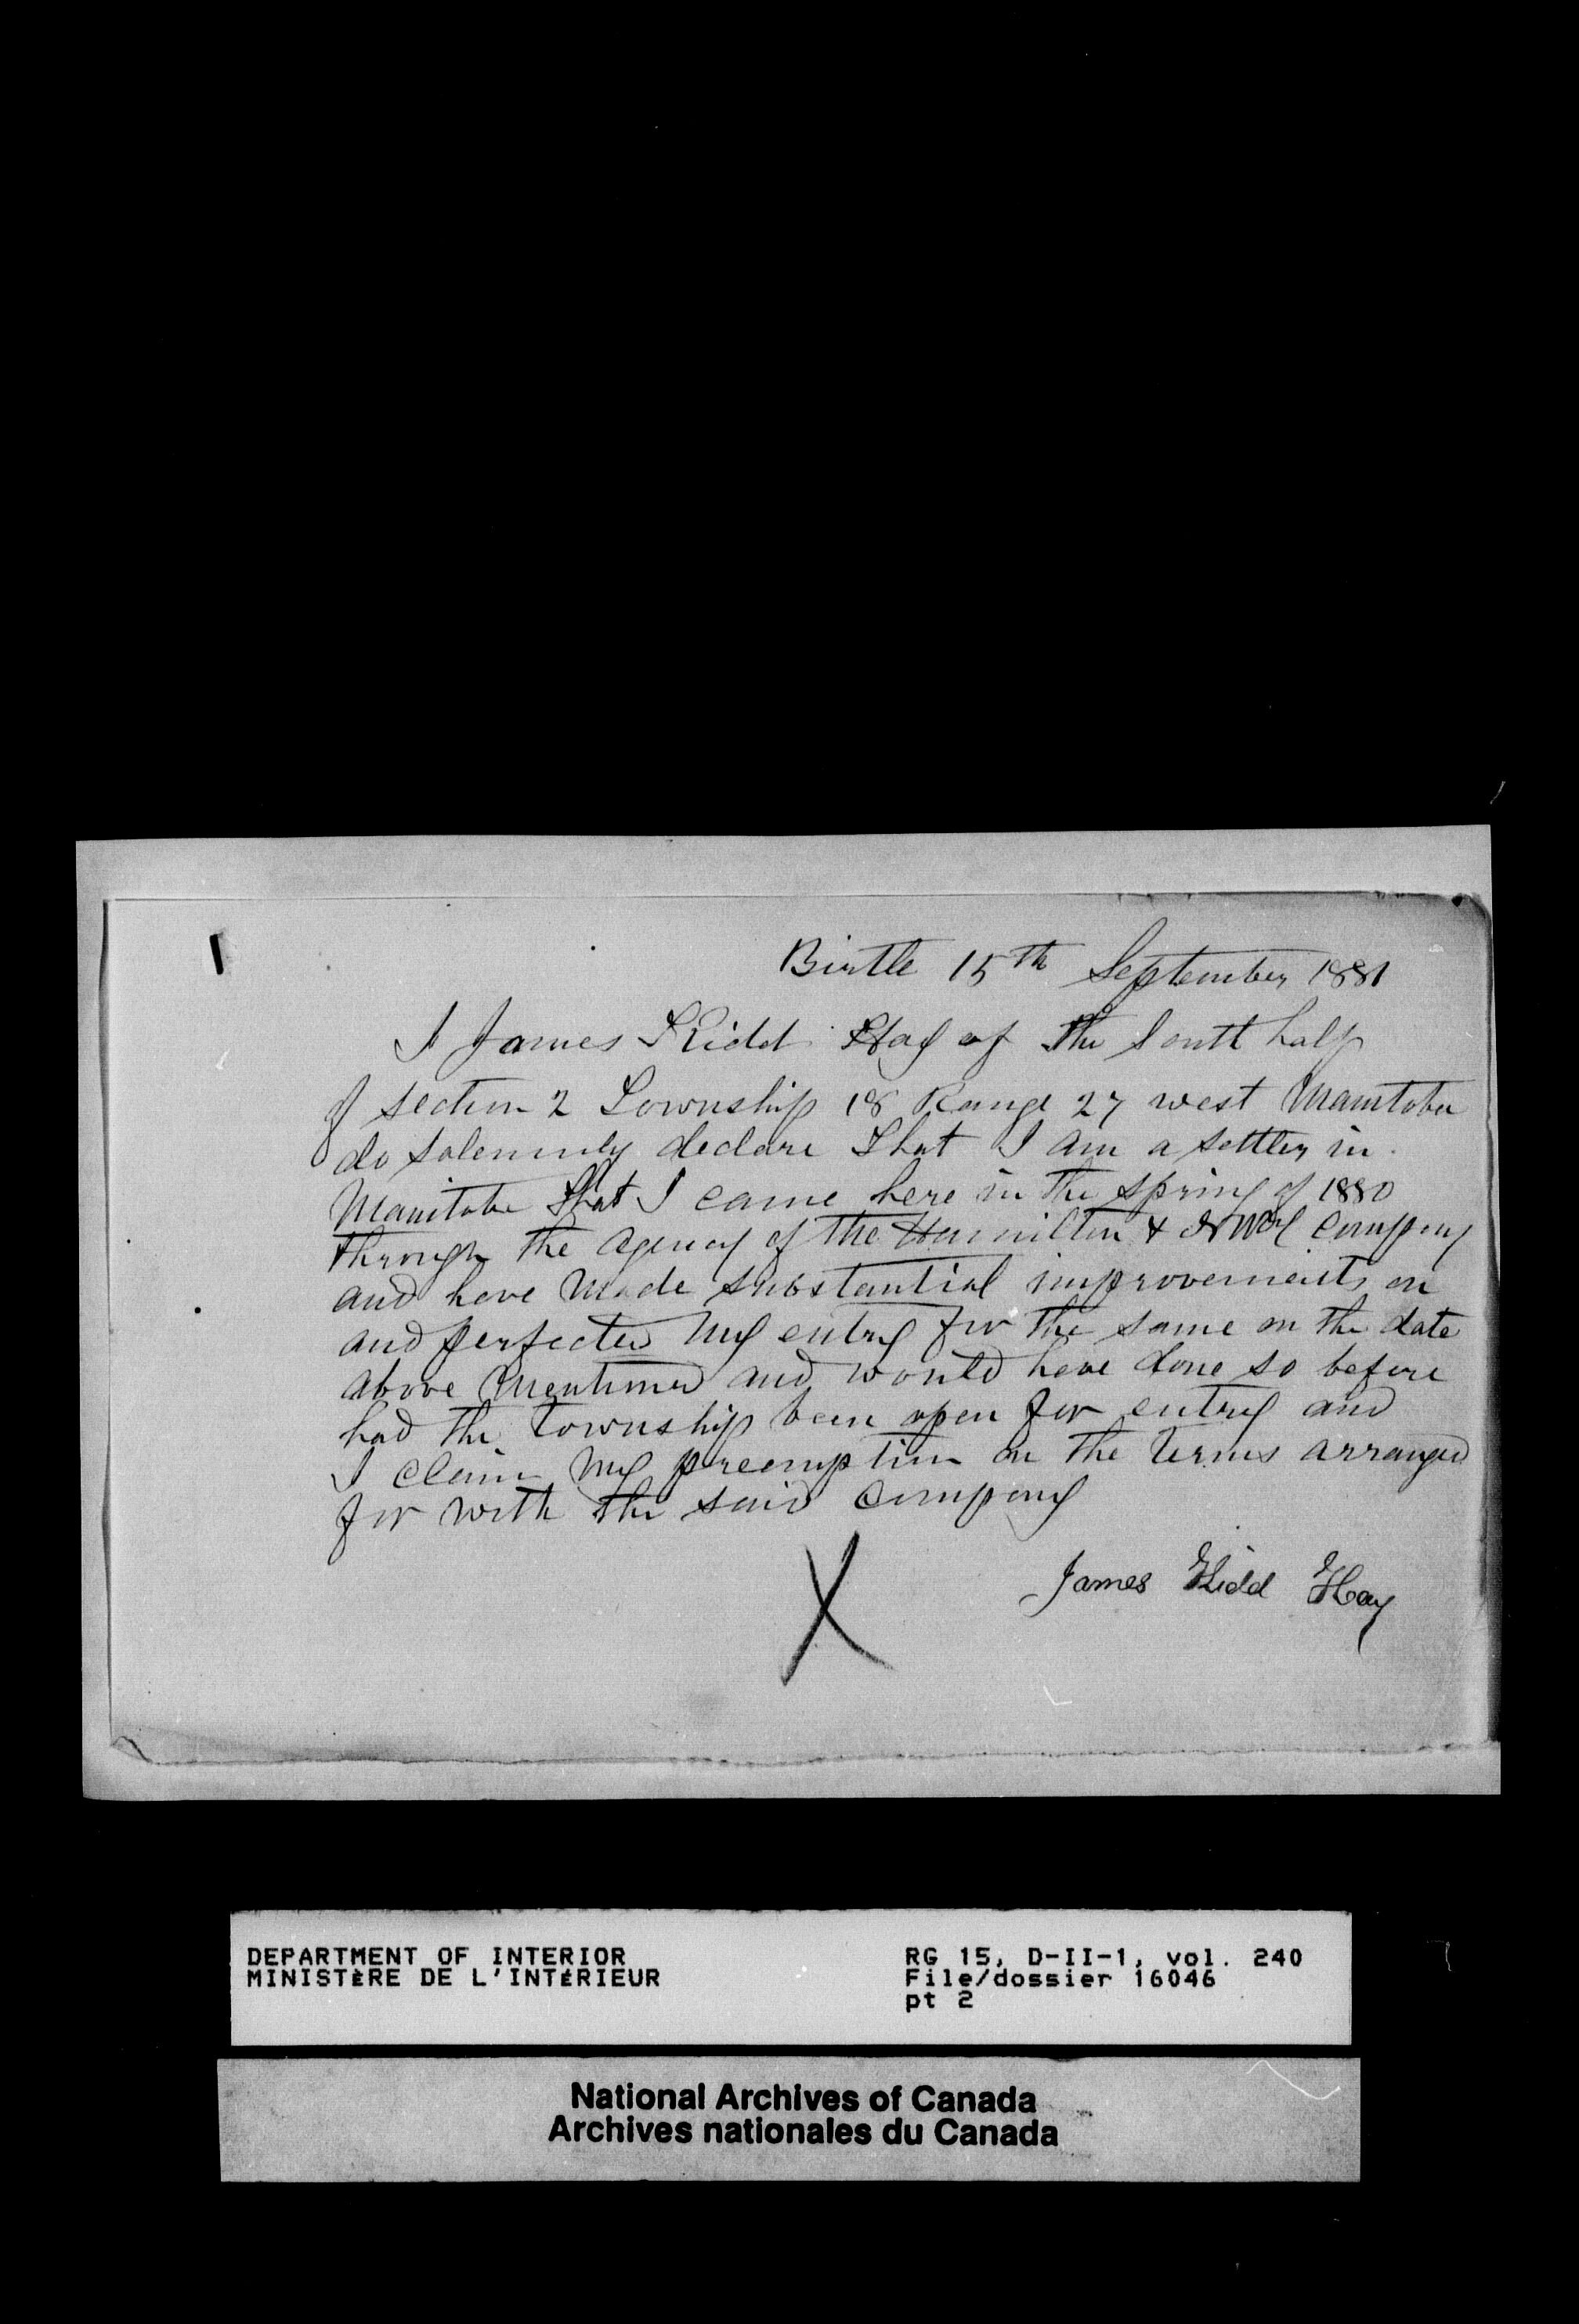 Birtle 15th September 1881
I James Kidd Hay of the South half
of section 2 Township 18 Range 27 west Manitoba
do solemnly declare that I am a settler in
Manitoba that I came here in the spring of 1880
through the agency of the Hamilton & N W Col Company
and have made substantial improvements on
and perfected my entry for the same on the date
above mentioned and would have done so before
had the township been open for entry and
I claim my preemption on the terms arranged
for with the said Company
James Kidd Hay
DEPARTMENT OF INTERIOR
MINISTÈRE DE L'INTÉRIEUR
RG 15, D-II-1, vol. 240
File/dossier 16046
pt 2
National Archives of Canada
Archives nationales du Canada